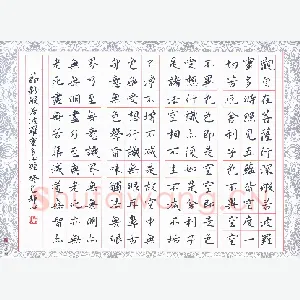 觀自在菩薩行深般若波羅
蜜多時照見五蘊皆空度一
切苦厄舍利子色不異空空
不異色色即是空空即是色
受想行識亦復如是舍利子
是諸法空相不生不滅不垢
不淨不增不減是故空中無
色無受想行識無眼耳鼻舌
身意無色聲香味觸法無眼
界乃至無意識界無無明亦
無無明盡乃至無老死亦無
老死盡無苦集滅道無智亦
節錄般若波羅蜜多心經 癸巳